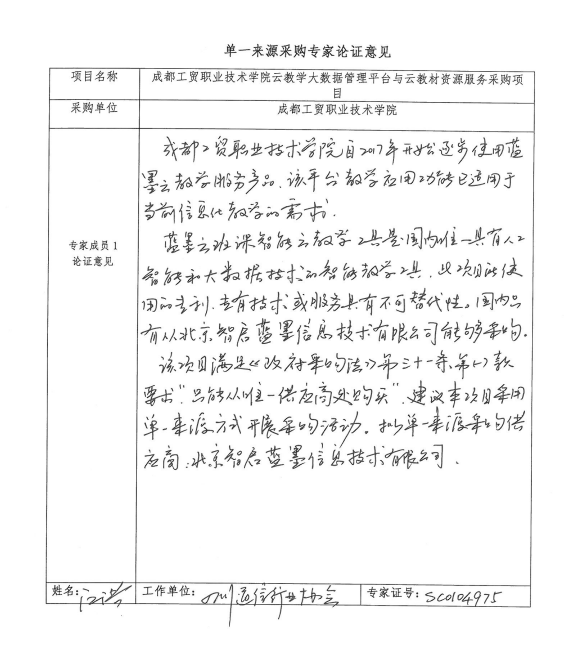 单一来源采购专家论证意见
项目名称
成都工贸职业技术学院云教学大数据管理平台与云教材资源服务采购项
目
采购单位
成都工贸职业技术学院
专家成员1
论证意见
成都工贸职业技术学院自2017年开始逐步使用蓝
墨云教学服务产品,该平台教学应用功能已适用于
当前信息化教学的需求.
蓝墨云班课智能云教学工具是国内唯一具有人工
智能和大数据技术的智能教学工具,此项目所使
用的专利.专有技术或服务具有不可替代性。国内只
有从北京智启蓝墨信息技术有限公司能够采购.
该项目满足《政府采购法》第三十一条、第(一)款
要求"只能从唯一供应商处购买",建议本项目采用
单一来源方式开展采购活动。拟单一来源采购供
应商:北京智启蓝墨信息技术有限公司.
姓名:
工作单位:四川通信行业协会
专家证号:SC0104975